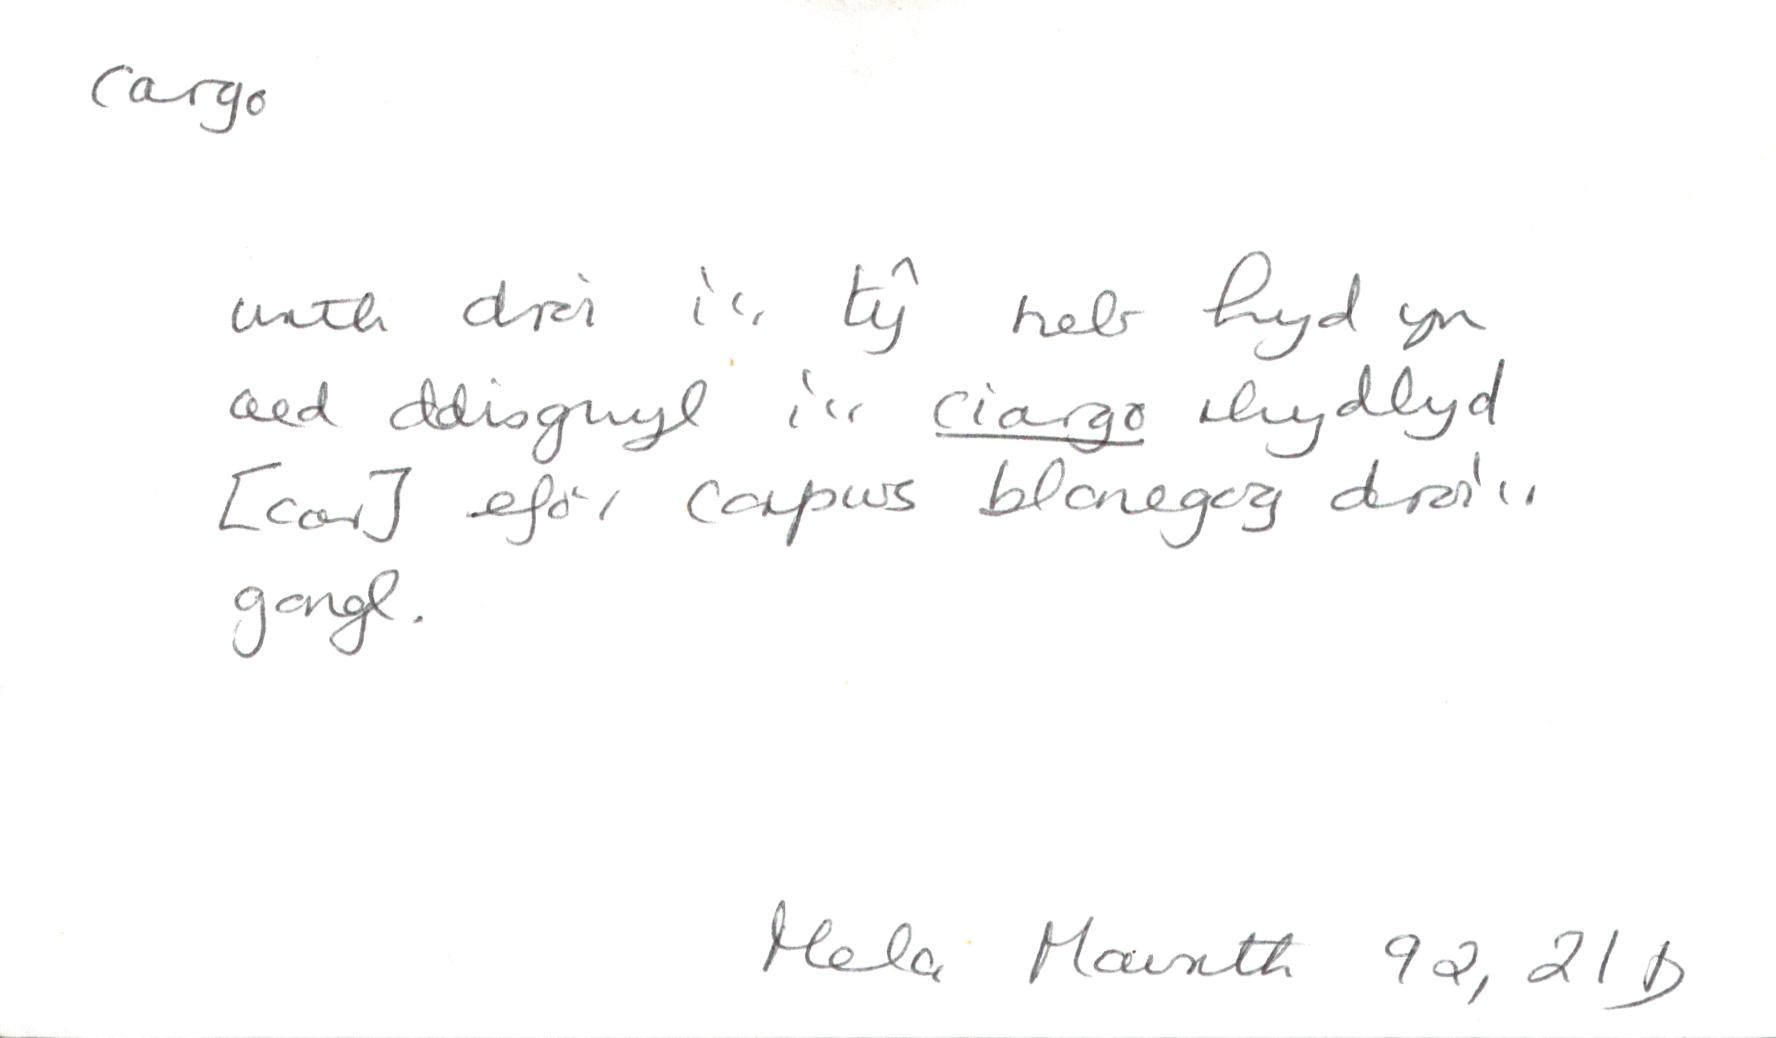 cargo
wrth droi i'r tŷ heb hyd yn
oed ddisgwyl i'r ciargo rhydlyd
[car] efo'i corpws blonegog droi'r
gongl.
Mela Mawrth 92, 21 D